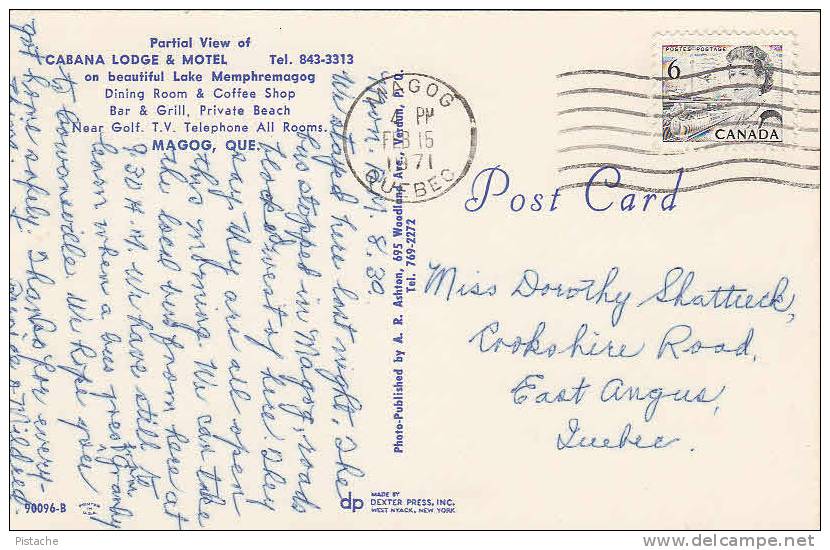 Partial View of
CABANA LODGE & MOTEL Tel. 843-3313
on beautiful Lake Memphremagog
Dining Room & Coffee Shop
Bar & Grill, Private Beach
Near Golf. T.V. Telephone All Rooms.
MAGOG, QUE.
Mon. A.M. 8.30
We stayed here last night. The
bus stopped in Magog, roads
closed west of here. They
say they are all open
this morning. We can take
the local bus from here at
9.30 A.M. We have still to
learn when a bus goes from Granby
to Cowansville. We hope you
got home safely. Thanks for every-
thing. & Mildred
90096-B
PRINTED
IN
U.S.A.
Photo-Published by A. R. Ashton, 695 Woodland Ave., Verdun, P.Q.
Tel. 769-2272
dp
MADE BY
DEXTER PRESS, INC.
WEST NYACK, NEW YORK
MAGOG
4 PM
FEB 15
1971
QUEBEC
POSTES POSTAGE
6
CANADA
Post Card
Miss Dorothy Shattuck,
Cookshire Road,
East Angus,
Quebec.
Pistache
delcampe.net